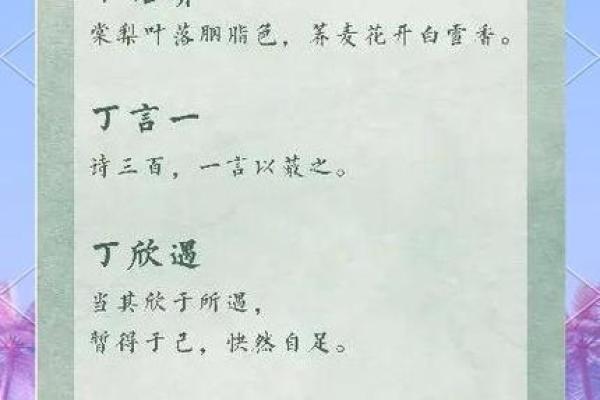 棠梨叶落胭脂色，荞麦花开白雪香。
丁言一
诗三百，一言以蔽之。
丁欣遇
当其欣于所遇，
暂得于己，快然自足。